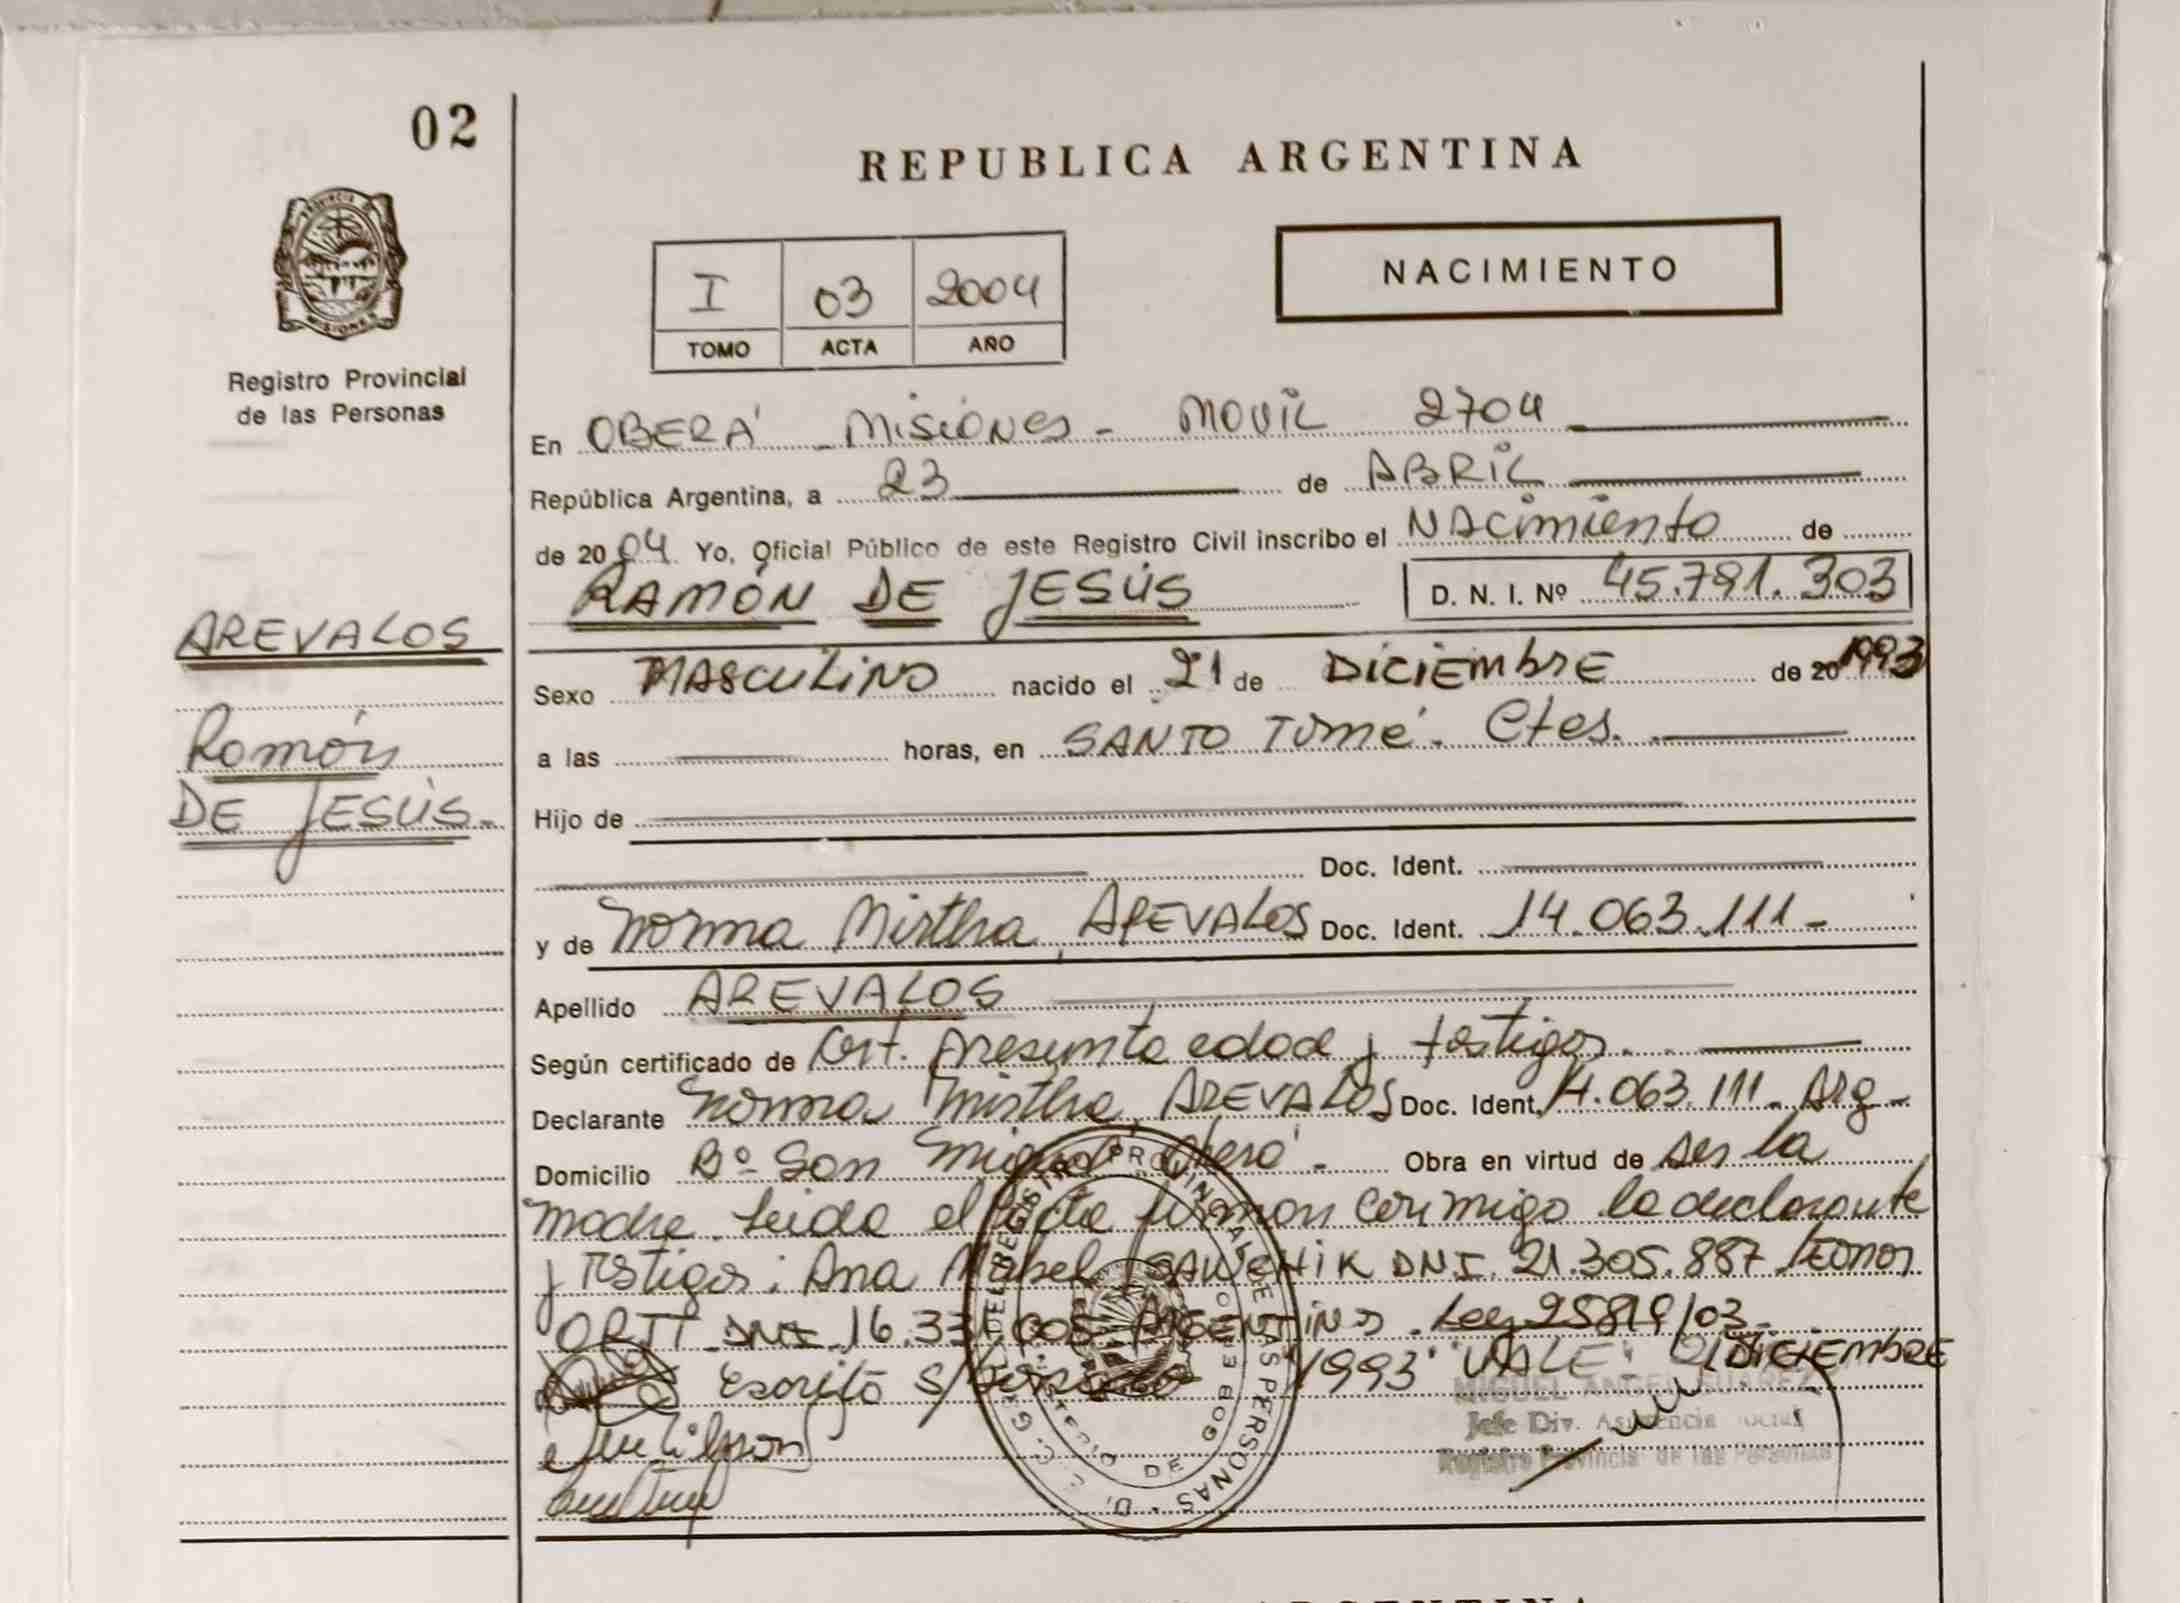 02
REPUBLICA ARGENTINA
PROVINCIA DE
MISIONES
Registro Provincial
de las Personas
I 03 2004
TOMO ACTA AÑO
NACIMIENTO
En OBERÁ - Misiones - MOVIL 2704
República Argentina, a 23 de ABRIL
de 2004 Yo, Oficial Público de este Registro Civil inscribo el NAcimiento de
RAMÓN DE JESÚS D. N. I. Nº 45.791.303
AREVALOS
Ramón
DE JESÚS.-
Sexo MASCULINO nacido el 21 de DICIEMBRE de 20 1993
a las horas, en SANTO TOMÉ - Ctes.
Hijo de
Doc. Ident.
y de Norma Mirtha AREVALOS Doc. Ident. 14.063.111-
Apellido AREVALOS
Según certificado de Cert. presunta edad y testigos.
Declarante Norma Mirtha AREVALOS Doc. Ident. 14.063.111- Arg-
Domicilio Bº San Miguel, Oberá - Obra en virtud de ser la
madre. Leida el acta firman conmigo la declarante
y testigos: Ana Mabel DNI. 21.305.887
ORTT DNI 16.33 ARGENTINOS. Ley 25819/03-
Escrito s/ "1993" VALE. 21 DICIEMBRE
MIGUEL ANGEL SUAREZ
Jefe Div. Asistencia Social
Registro Provincial de las Personas
REGISTRO PROVINCIAL DE LAS PERSONAS